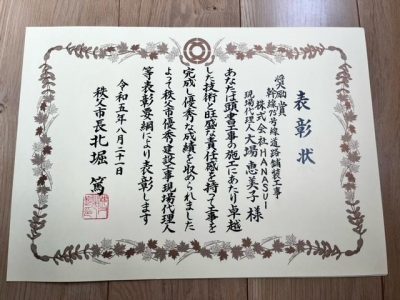 表彰状
奨励賞
幹線75号線道路舗装工事
株式会社HANASUI
現場代理人 大場 恵美子 様
あなたは頭書工事の施工にあたり卓越
した技術と旺盛な責任感を持って工事を
完成し優秀な成績を収められました
よって秩父市優秀建設工事現場代理人
等表彰要綱により表彰します
令和五年八月二十一日
秩父市長 北堀 篤